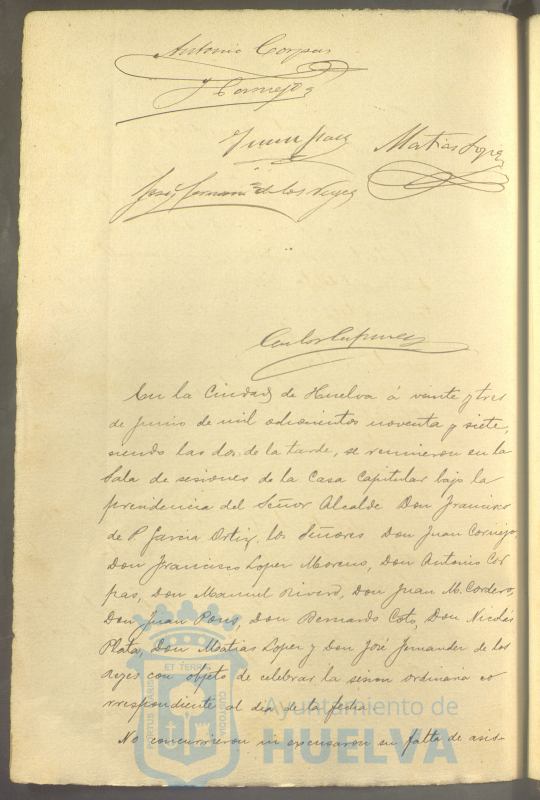 Antonio Corpas
J Cornejo
Juan
Matias Lopez
José Fernandz de los Reyes
Carlos
En la Ciudad de Huelva á veinte y tres
de Junio de mil ochocientos noventa y siete,
siendo las dos de la tarde, se reunieron en la
Sala de sesiones de la Casa Capitular bajo la
presidencia del Señor Alcalde Don Francisco
de P. Garcia Ortiz, los Señores Don Juan Cornejo,
Don Francisco Lopez Moreno, Don Antonio Cor
pas, Don Manuel Rivero, Don Juan M. Cordero,
Don Juan Pons, Don Bernardo Coto, Don Nicolás
Plata, Don Matias Lopez y Don José Fernandez de los
Reyes con objeto de celebrar la sesion ordinaria co
rrespondiente al dia de la fecha.
No concurrieron ni escusaron su falta de asis-
PORTUS MARIS ET TERRAE CUSTODIA
Ayuntamiento de
HUELVA